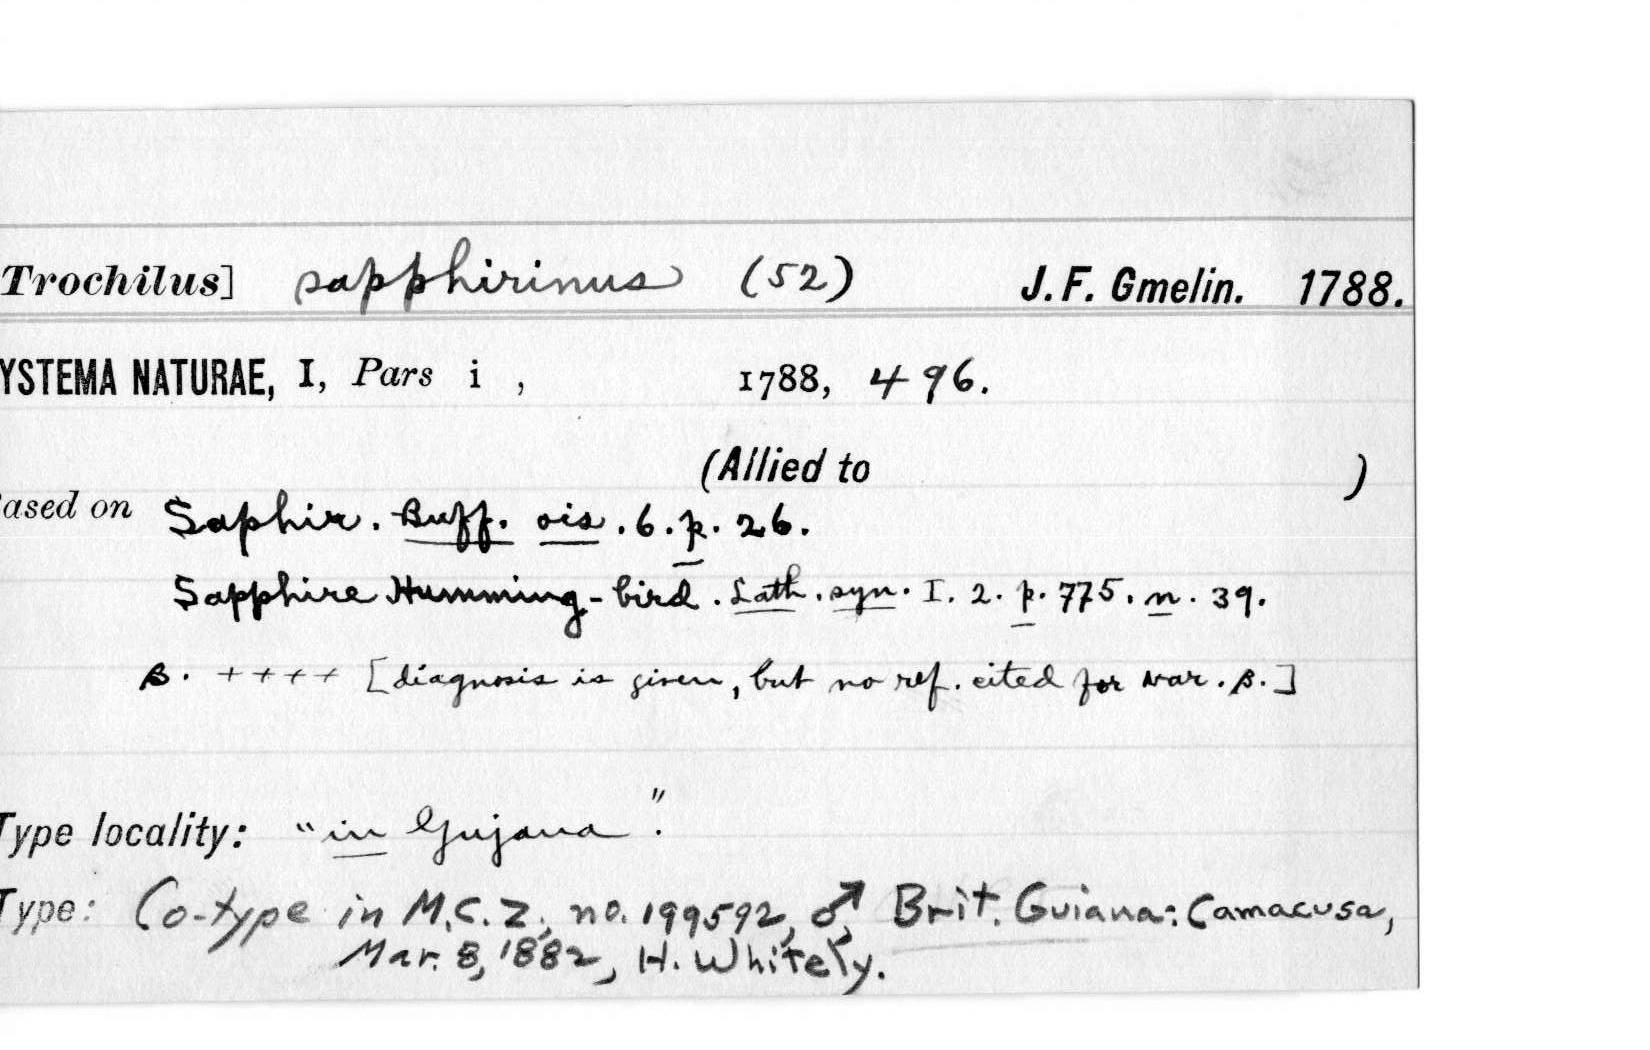 Trochilus] sapphirinus (52) J. F. Gmelin. 1788.
YSTEMA NATURAE, I, Pars i , 1788, 496.
(Allied to )
ased on Saphir. Buff. ois. 6. p. 26.
Sapphire Humming-bird. Lath. syn. I. 2. p. 775. n. 39.
β. ++++ [diagnosis is given, but no ref. cited for var. β.]
Type locality: "in Gujana".
Type: Co-type in M.C.Z., no. 199592, ♂, Brit. Guiana: Camacusa,
Mar. 8, 1882, H. Whitely.